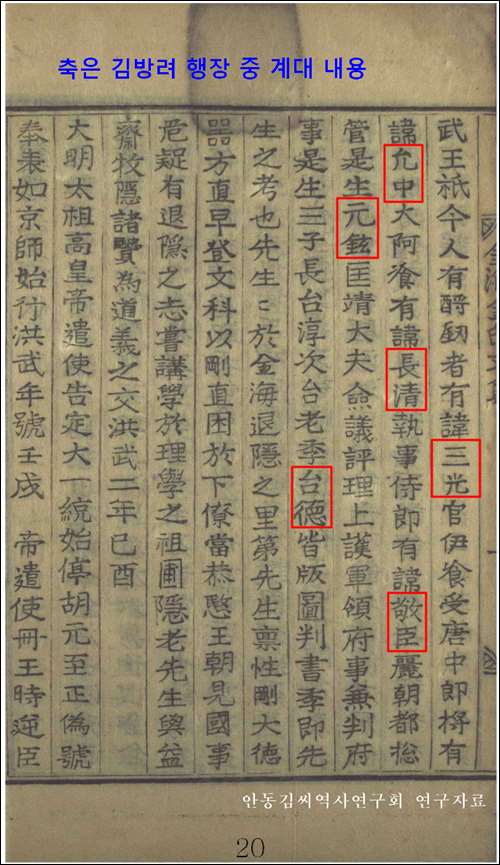 축은 김방려 행장 중 계대 내용
武王祇今人有酹釰者有諱三光官伊飡受唐中郎將有
諱允中大阿飡有諱長清執事侍郎有諱敬臣麗朝都摠
管是生元鉉匡靖大夫僉議評理上護軍領府事兼判府
事是生三子長台淳次台老季台德皆版圖判書季即先
生之考也先生〻於金海退隱之里第先生禀性剛大德
器方直早登文科以剛直困於下僚當恭愍王朝見國事
危疑有退隱之志嘗講學於理學之祖圃隱老先生與益
齋牧隱諸賢為道義之交洪武二年已酉
大明太祖高皇帝遣使告定大一統始停胡元至正偽號
奉表如京師始行洪武年號壬戌 帝遣使冊王時逆臣
안동김씨역사연구회 연구자료
20